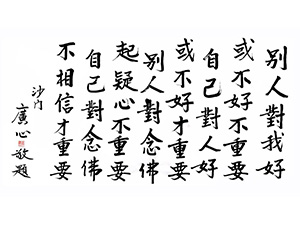 別人對我好
或不好不重要
自己對人好
或不好才重要
別人對念佛
起疑心不重要
自己對念佛
不相信才重要
沙门
廣心敬題